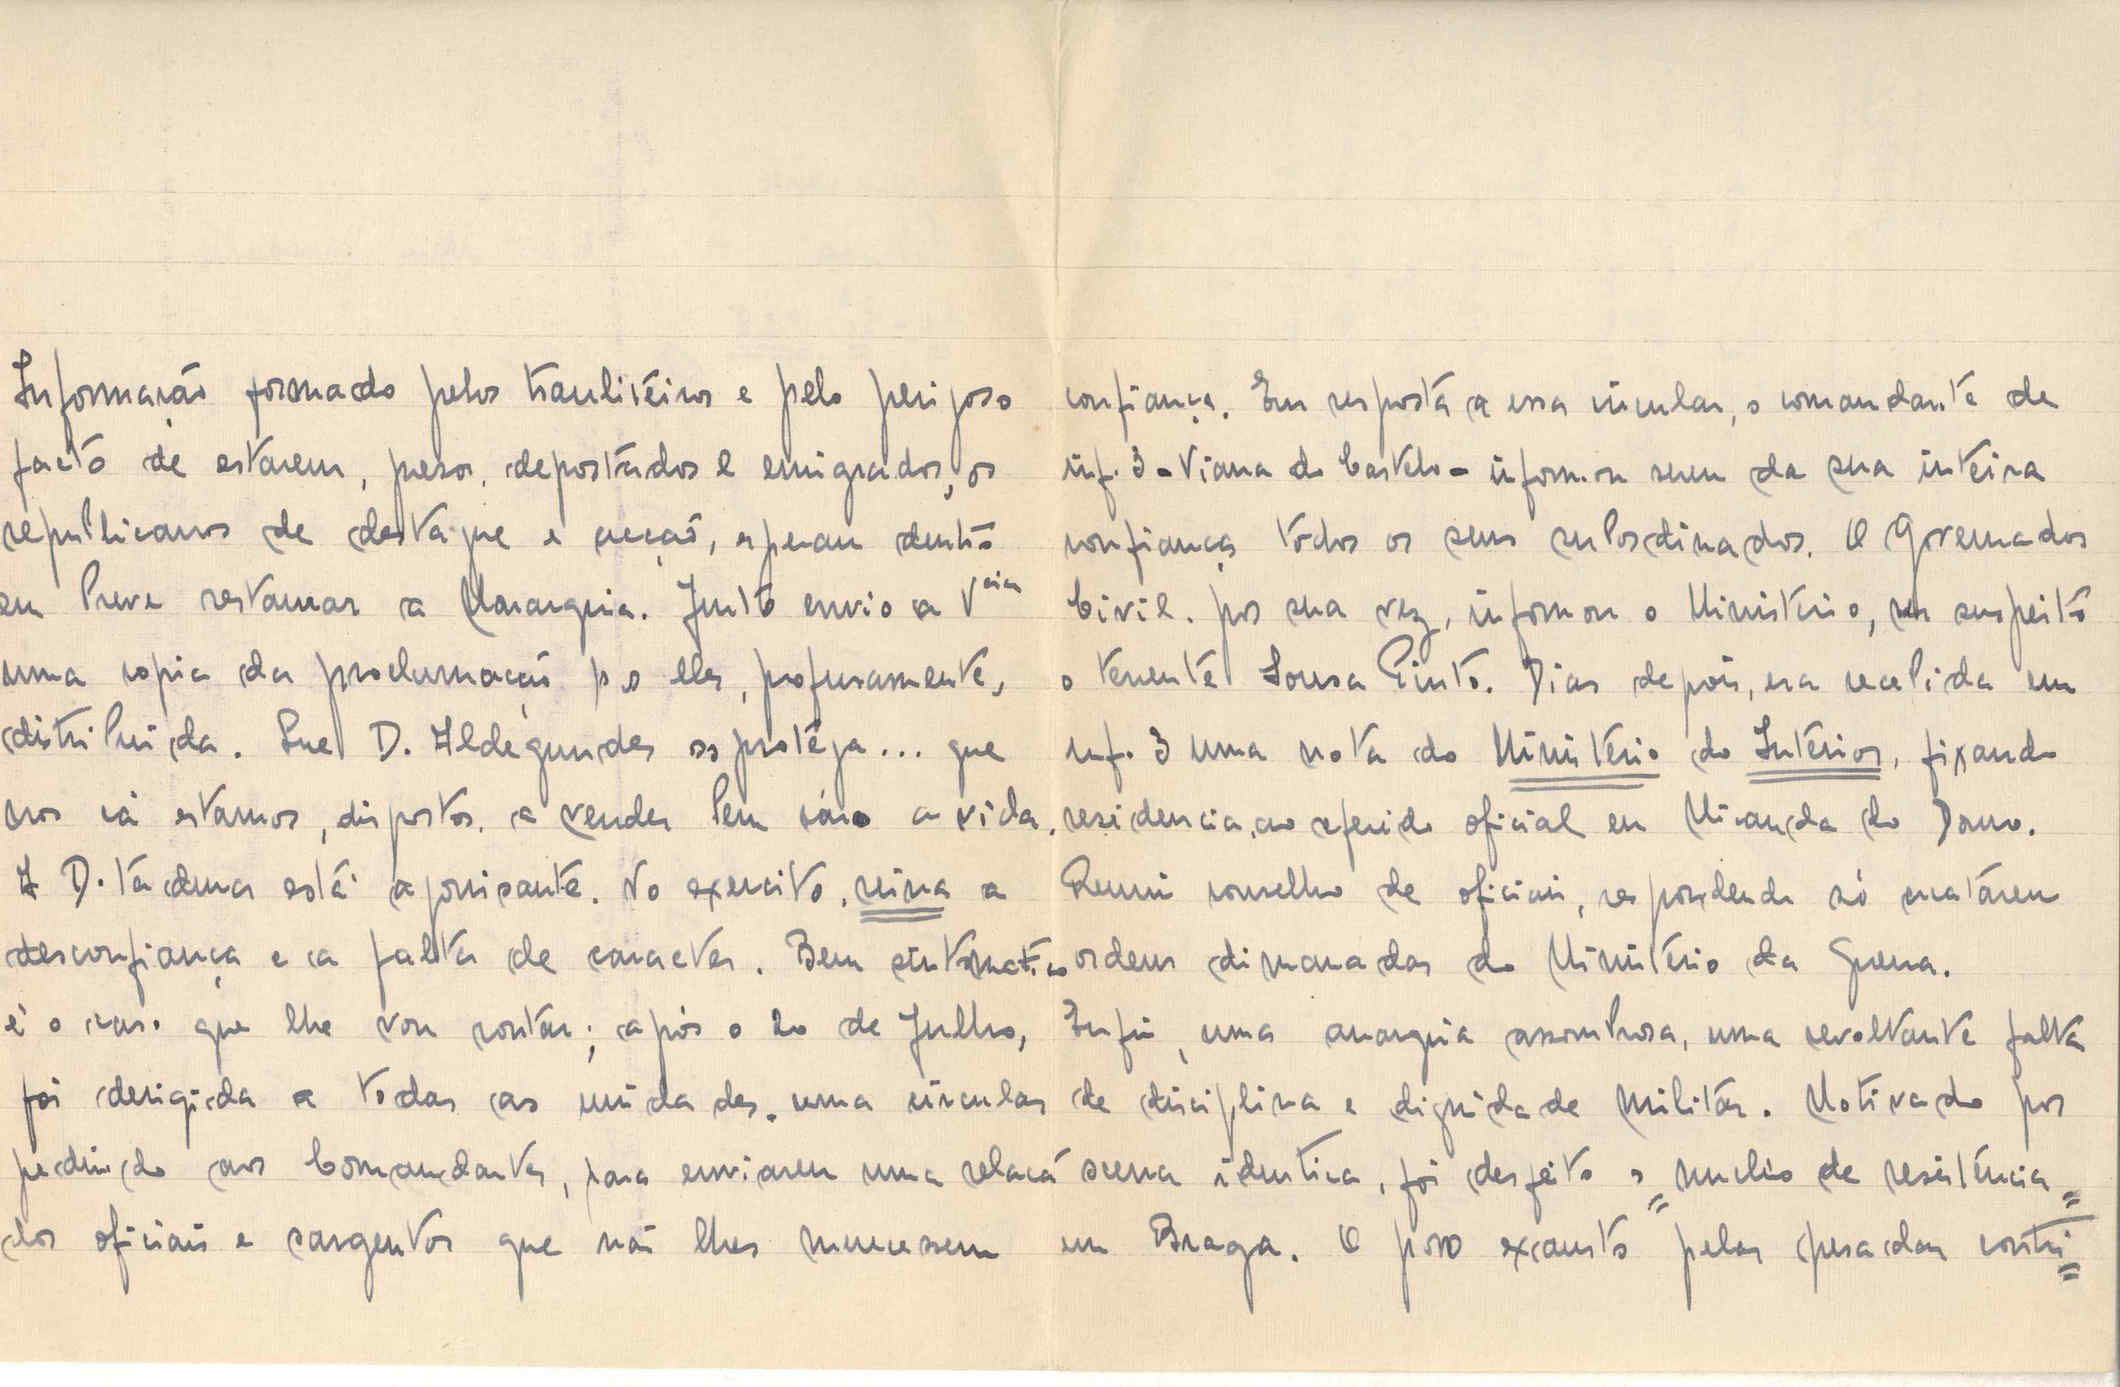 Informação formado pelos trauliteiros e pelo perigoso
facto de estarem, presos, deportados e emigrados, os
republicanos de destaque e acção, esperam dentro
em breve restaurar a Monarquia. Junto envio a V
uma copia da proclamação por elles, profusamente,
distribuida. Que D. Aldegundes os proteja... que
nos cá estamos, dispostos, a vender bem caro a vida.
A Ditadura está agonisante. No exercito, reina a
desconfiança e a falta de caracter. Bem sintomatico
é o caso que lhe vou contar; após o 20 de Julho,
foi derigida a todas as unidades, uma circular
pedindo aos Comandantes, para enviarem uma relacá
dos oficiais e sargentos que não lhes merecessem
confiança. Em resposta a essa circular, o comandante de
inf. 3 - Viana do Castelo - informou serem da sua inteira
confiança todos os seus subordinados. O Governador
Civil. por sua vez, informou o Ministerio, ser suspeito
o tenente Sousa Pinto. Dias depois, era recebida em
inf. 3 uma nota do Ministério do Intérior, fixando
residencia, ao referido oficial em Miranda do Douro.
Reuniu conselho de oficiais, respondendo só acatárem
ordens dimanadas do Ministério da Guerra.
Enfim, uma anarquia assombrosa, uma revoltante falta
de disciplina e dignidade militar. Motivado por
scena identica, foi desfeito o nucleo de resistência
em Braga. O povo exausto pelas pesadas contri=